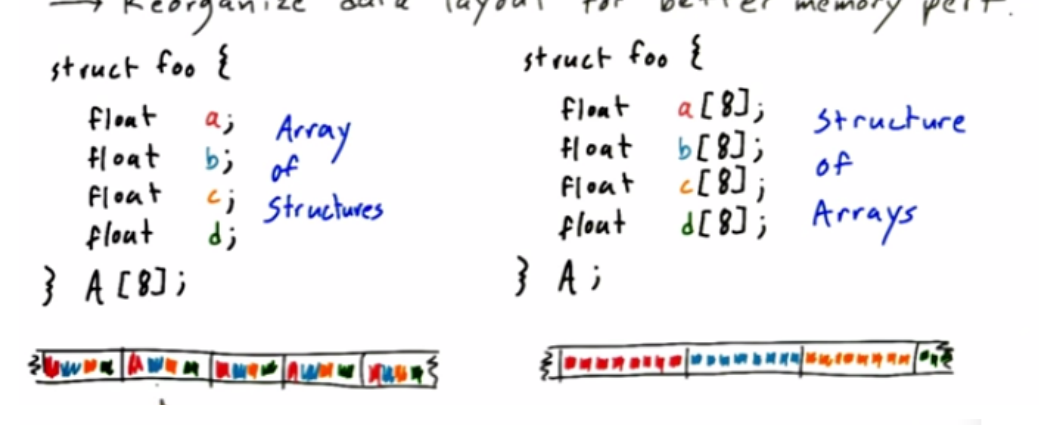 → Reorganize data layout for better memory perf.
struct foo {
float a;
float b;
float c;
float d;
} A[8];
Array
of
Structures
struct foo {
float a[8];
float b[8];
float c[8];
float d[8];
} A;
Structure
of
Arrays